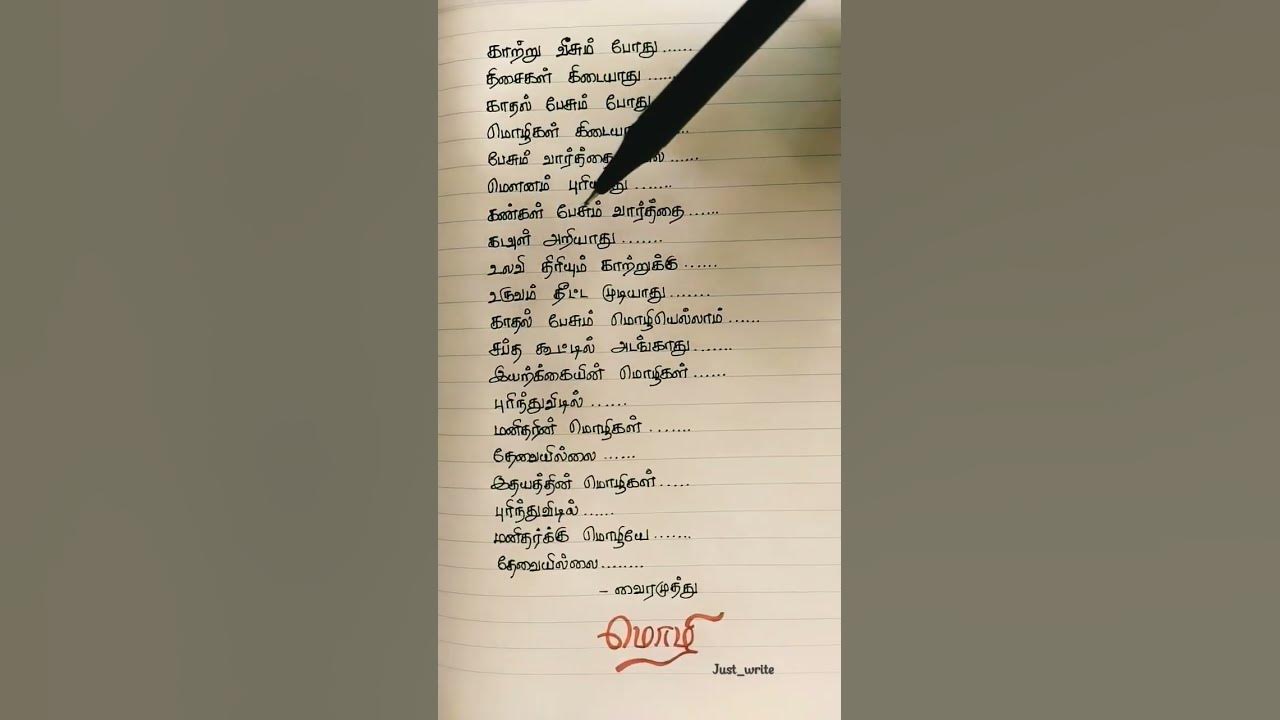 காற்று வீசும் போது......
திசைகள் கிடையாது......
காதல் பேசும் போது
மொழிகள் கிடையா
பேசும் வார்த்தை
மௌனம் புரியாது.......
கண்கள் பேசும் வார்த்தை......
கடவுள் அறியாது.......
உலவி திரியும் காற்றுக்கு......
உருவம் தீட்ட முடியாது.......
காதல் பேசும் மொழியெல்லாம்......
சப்த கூட்டில் அடங்காது.......
இயற்க்கையின் மொழிகள்......
புரிந்துவிடில்......
மனிதரின் மொழிகள்.......
தேவையில்லை......
இதயத்தின் மொழிகள்.....
புரிந்துவிடில்......
மனிதர்க்கு மொழியே.......
தேவையில்லை........
– வைரமுத்து
மொழி
Just_write